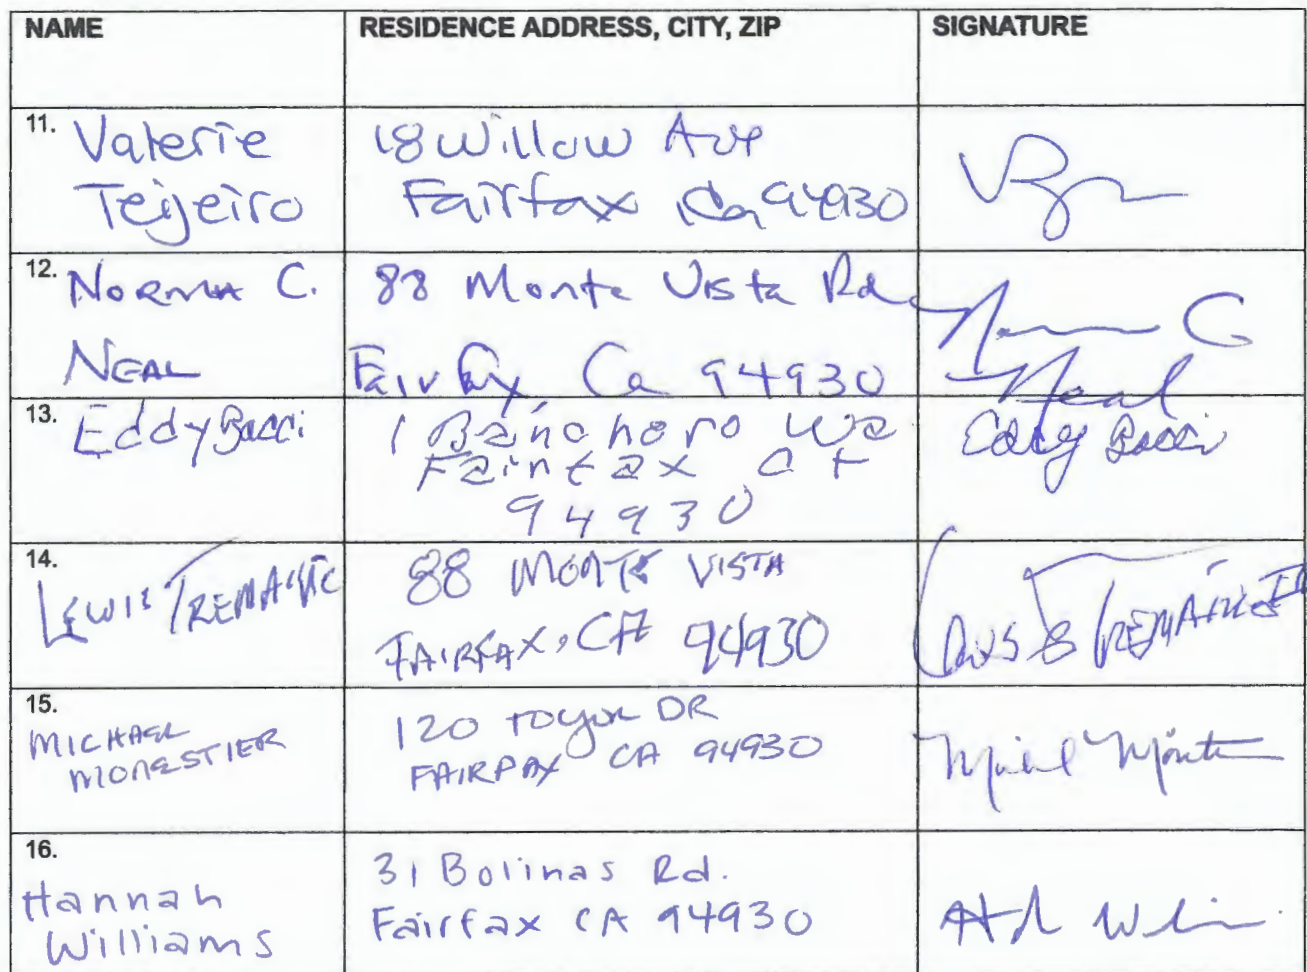 NAME RESIDENCE ADDRESS, CITY, ZIP SIGNATURE
11. Valerie
Teijeiro
18 Willow Ave
Fairfax Ca 94930
12. NORMA C.
NEAL
88 Monte Vista Rd
Fairfax, Ca 94930
Neal
13. Eddy Bacci
1 Banchero Wa
Fairfax C
94930
Eddy Bacci
14. LEWIS TREMAINE
88 MONTE VISTA
FAIRFAX, CA 94930
TREMAINE II
15. MICHAEL
MONESTIER
120 TOYON DR
FAIRFAX CA 94930
16. Hannah
Williams
31 Bolinas Rd.
Fairfax CA 94930